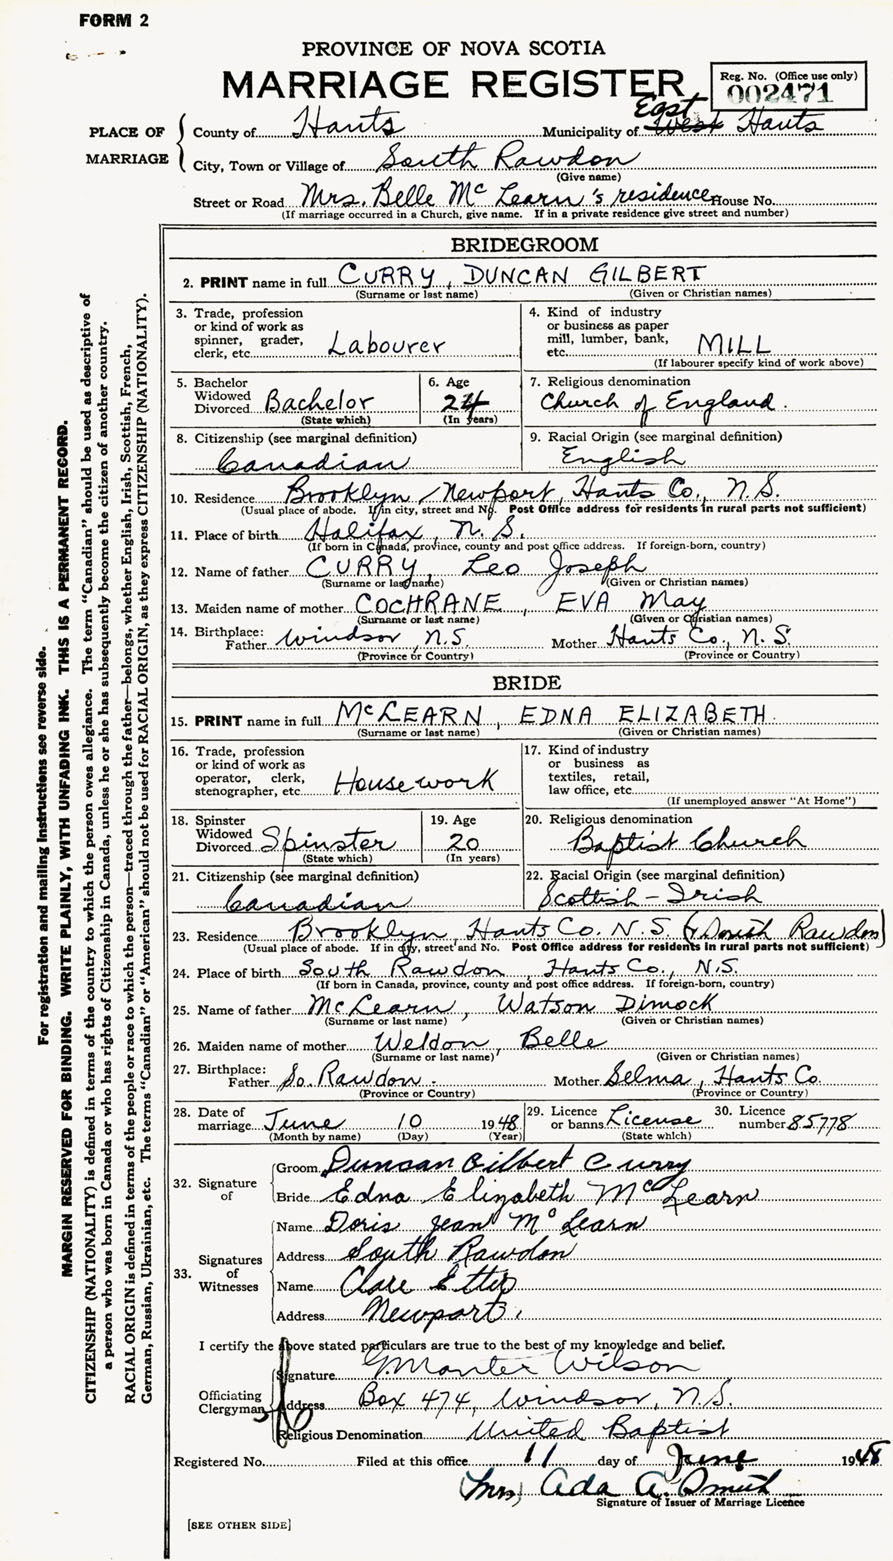 FORM 2
PROVINCE OF NOVA SCOTIA
MARRIAGE REGISTER
Reg. No. (Office use only)
002471
PLACE OF MARRIAGE
County of Hants Municipality of East West Hants
City, Town or Village of South Rawdon
(Give name)
Street or Road Mrs. Belle McLearn's residence House No.
(If marriage occurred in a Church, give name. If in a private residence give street and number)
BRIDEGROOM
2. PRINT name in full CURRY, DUNCAN GILBERT
(Surname or last name) (Given or Christian names)
3. Trade, profession or kind of work as spinner, grader, clerk, etc. Labourer
4. Kind of industry or business as paper mill, lumber, bank, etc. MILL
(If labourer specify kind of work above)
5. Bachelor Widowed Divorced Bachelor
(State which)
6. Age 24
(In years)
7. Religious denomination
Church of England.
8. Citizenship (see marginal definition)
Canadian
9. Racial Origin (see marginal definition)
English
10. Residence Brooklyn, Newport, Hants Co., N.S.
(Usual place of abode. If in city, street and No. Post Office address for residents in rural parts not sufficient)
11. Place of birth Halifax, N.S.
(If born in Canada, province, county and post office address. If foreign-born, country)
12. Name of father CURRY, Leo Joseph
(Surname or last name) (Given or Christian names)
13. Maiden name of mother COCHRANE, EVA May
(Surname or last name) (Given or Christian names)
14. Birthplace: Father Windsor, N.S. Mother Hants Co., N.S.
(Province or Country) (Province or Country)
BRIDE
15. PRINT name in full McLEARN, EDNA ELIZABETH.
(Surname or last name) (Given or Christian names)
16. Trade, profession or kind of work as operator, clerk, stenographer, etc. Housework
17. Kind of industry or business as textiles, retail, law office, etc.
(If unemployed answer "At Home")
18. Spinster Widowed Divorced Spinster
(State which)
19. Age 20
(In years)
20. Religious denomination
Baptist Church
21. Citizenship (see marginal definition)
Canadian
22. Racial Origin (see marginal definition)
Scottish-Irish
23. Residence Brooklyn, Hants Co. N.S. (& South Rawdon)
(Usual place of abode. If in city, street and No. Post Office address for residents in rural parts not sufficient)
24. Place of birth South Rawdon, Hants Co., N.S.
(If born in Canada, province, county and post office address. If foreign-born, country)
25. Name of father McLearn, Watson Dimock
(Surname or last name) (Given or Christian names)
26. Maiden name of mother Weldon, Belle
(Surname or last name) (Given or Christian names)
27. Birthplace: Father So. Rawdon. Mother Selma, Hants Co.
(Province or Country) (Province or Country)
28. Date of marriage June 10 1948
(Month by name) (Day) (Year)
29. Licence or banns License
(State which)
30. Licence number 85778
32. Signature of
Groom Duncan Gilbert Curry
Bride Edna Elizabeth McLearn
33. Signatures of Witnesses
Name Doris Jean McLearn
Address South Rawdon
Name Clare Etter
Address Newport.
I certify the above stated particulars are true to the best of my knowledge and belief.
Officiating Clergyman
Signature G. Manter Wilson
Address Box 474, Windsor, N.S.
Religious Denomination United Baptist
Registered No. Filed at this office 11 day of June 1948
(Mrs) Ada A. Smith
Signature of Issuer of Marriage Licence
[SEE OTHER SIDE]
For registration and mailing instructions see reverse side.
MARGIN RESERVED FOR BINDING. WRITE PLAINLY, WITH UNFADING INK. THIS IS A PERMANENT RECORD.
CITIZENSHIP (NATIONALITY) is defined in terms of the country to which the person owes allegiance. The term "Canadian" should be used as descriptive of
a person who was born in Canada or who has rights of Citizenship in Canada, unless he or she has subsequently become the citizen of another country.
RACIAL ORIGIN is defined in terms of the people or race to which the person—traced through the father—belongs, whether English, Irish, Scottish, French,
German, Russian, Ukrainian, etc. The terms "Canadian" or "American" should not be used for RACIAL ORIGIN, as they express CITIZENSHIP (NATIONALITY).